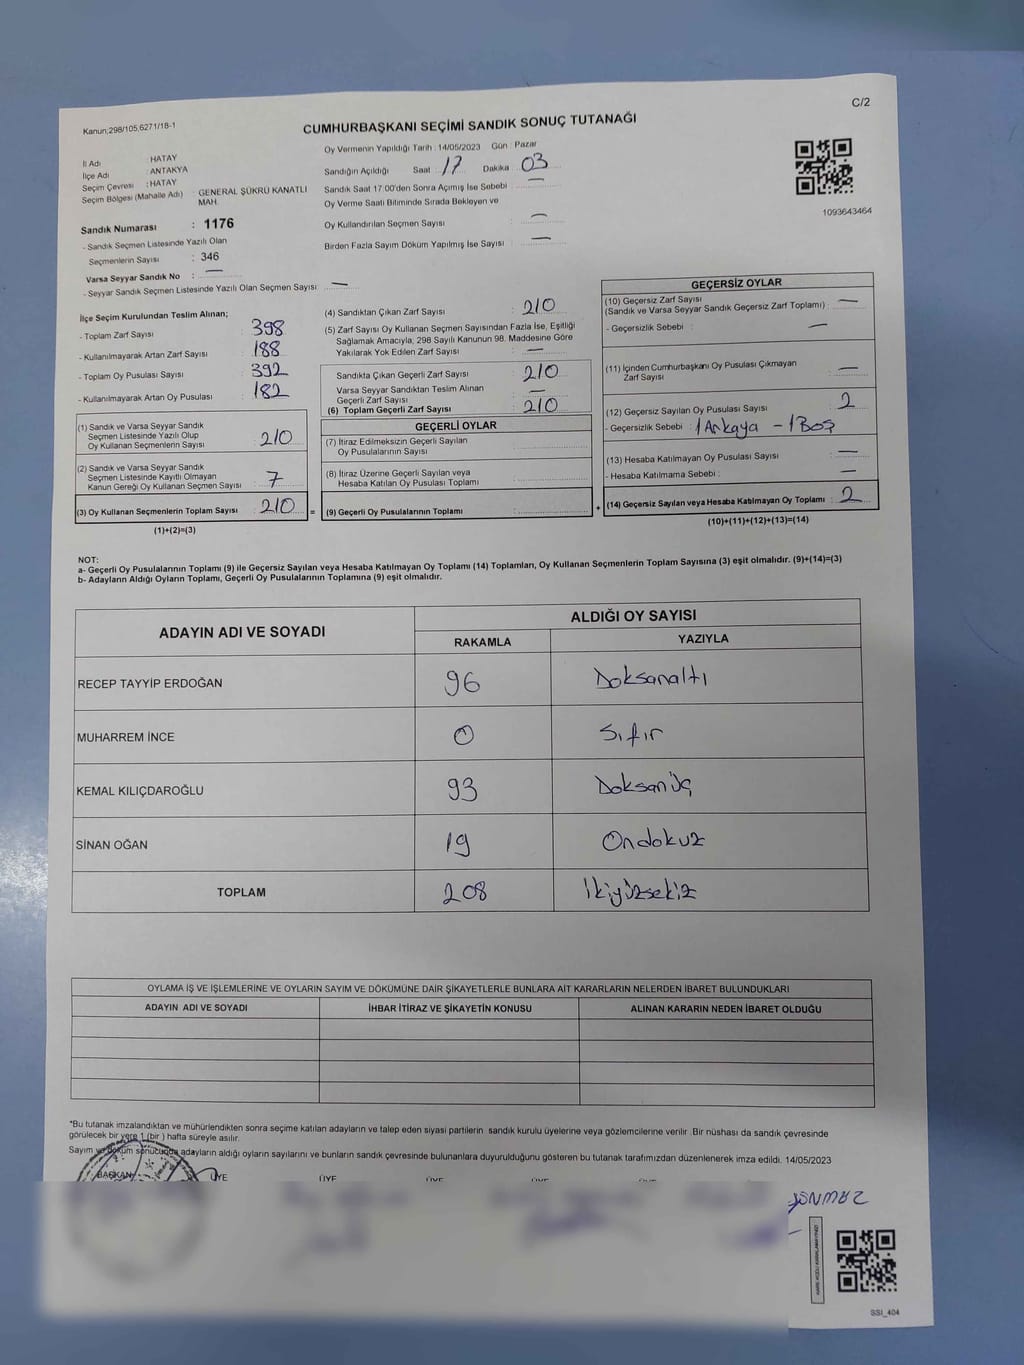 C/2
Kanun;298/105,6271/18-1
CUMHURBAŞKANI SEÇİMİ SANDIK SONUÇ TUTANAĞI
İl Adı : HATAY
İlçe Adı : ANTAKYA
Seçim Çevresi : HATAY
Seçim Bölgesi (Mahalle Adı) : GENERAL ŞÜKRÜ KANATLI MAH.
Sandık Numarası : 1176
- Sandık Seçmen Listesinde Yazılı Olan
Seçmenlerin Sayısı : 346
Varsa Seyyar Sandık No : —
- Seyyar Sandık Seçmen Listesinde Yazılı Olan Seçmen Sayısı : —
Oy Vermenin Yapıldığı Tarih : 14/05/2023 Gün : Pazar
Sandığın Açıldığı Saat 17 Dakika 03
Sandık Saat 17:00'den Sonra Açmış İse Sebebi : —
Oy Verme Saati Bitiminde Sırada Bekleyen ve
Oy Kullandırılan Seçmen Sayısı : —
Birden Fazla Sayım Döküm Yapılmış İse Sayısı : —
1093643464
İlçe Seçim Kurulundan Teslim Alınan;
- Toplam Zarf Sayısı : 398
- Kullanılmayarak Artan Zarf Sayısı : 188
- Toplam Oy Pusulası Sayısı : 392
- Kullanılmayarak Artan Oy Pusulası : 182
(1) Sandık ve Varsa Seyyar Sandık
Seçmen Listesinde Yazılı Olup
Oy Kullanan Seçmenlerin Sayısı : 210
(2) Sandık ve Varsa Seyyar Sandık
Seçmen Listesinde Kayıtlı Olmayan
Kanun Gereği Oy Kullanan Seçmen Sayısı : 7
(3) Oy Kullanan Seçmenlerin Toplam Sayısı : 210
(1)+(2)=(3)
(4) Sandıktan Çıkan Zarf Sayısı : 210
(5) Zarf Sayısı Oy Kullanan Seçmen Sayısından Fazla İse, Eşitliği
Sağlamak Amacıyla, 298 Sayılı Kanunun 98. Maddesine Göre
Yakılarak Yok Edilen Zarf Sayısı : —
Sandıkta Çıkan Geçerli Zarf Sayısı : 210
Varsa Seyyar Sandıktan Teslim Alınan
Geçerli Zarf Sayısı : —
(6) Toplam Geçerli Zarf Sayısı : 210
GEÇERLİ OYLAR
(7) İtiraz Edilmeksizin Geçerli Sayılan
Oy Pusulalarının Sayısı :
(8) İtiraz Üzerine Geçerli Sayılan veya
Hesaba Katılan Oy Pusulası Toplamı :
= (9) Geçerli Oy Pusulalarının Toplamı :
GEÇERSİZ OYLAR
(10) Geçersiz Zarf Sayısı
(Sandık ve Varsa Seyyar Sandık Geçersiz Zarf Toplamı) : —
- Geçersizlik Sebebi : —
(11) İçinden Cumhurbaşkanı Oy Pusulası Çıkmayan
Zarf Sayısı : —
(12) Geçersiz Sayılan Oy Pusulası Sayısı : 2
- Geçersizlik Sebebi : 1 Ankaya - 1 Boş
(13) Hesaba Katılmayan Oy Pusulası Sayısı : —
- Hesaba Katılmama Sebebi : —
+ (14) Geçersiz Sayılan veya Hesaba Katılmayan Oy Toplamı : 2
(10)+(11)+(12)+(13)=(14)
NOT:
a- Geçerli Oy Pusulalarının Toplamı (9) ile Geçersiz Sayılan veya Hesaba Katılmayan Oy Toplamı (14) Toplamları, Oy Kullanan Seçmenlerin Toplam Sayısına (3) eşit olmalıdır. (9)+(14)=(3)
b- Adayların Aldığı Oyların Toplamı, Geçerli Oy Pusulalarının Toplamına (9) eşit olmalıdır.
ADAYIN ADI VE SOYADI ALDIĞI OY SAYISI
RAKAMLA YAZIYLA
RECEP TAYYİP ERDOĞAN 96 Doksanaltı
MUHARREM İNCE 0 Sıfır
KEMAL KILIÇDAROĞLU 93 Doksanüç
SİNAN OĞAN 19 Ondokuz
TOPLAM 208 İkiyüzsekiz
OYLAMA İŞ VE İŞLEMLERİNE VE OYLARIN SAYIM VE DÖKÜMÜNE DAİR ŞİKAYETLERLE BUNLARA AİT KARARLARIN NELERDEN İBARET BULUNDUKLARI
ADAYIN ADI VE SOYADI İHBAR İTİRAZ VE ŞİKAYETİN KONUSU ALINAN KARARIN NEDEN İBARET OLDUĞU
*Bu tutanak imzalandıktan ve mühürlendikten sonra seçime katılan adayların ve talep eden siyasi partilerin sandık kurulu üyelerine veya gözlemcilerine verilir. Bir nüshası da sandık çevresinde
görülecek bir yere 1 (bir) hafta süreyle asılır.
Sayım ve döküm sonucunda adayların aldığı oyların sayılarını ve bunların sandık çevresinde bulunanlara duyurulduğunu gösteren bu tutanak tarafımızdan düzenlenerek imza edildi. 14/05/2023
BAŞKAN ÜYE ÜYE ÜYE ÜYE
SSİ_404